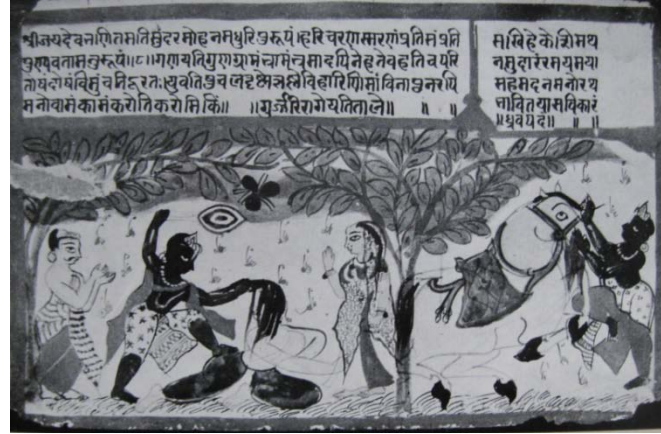 श्रीजयदेवभणितमतिसुंदरमोहनमधुरिपुरूपं॥हरिचरणस्मरणंप्रतिसंप्रति
पुण्यवतामनुरूपं॥८॥गणयतिगुणग्रामंभ्रामंभ्रमादपिनेहतेवहतिचपरि
तोषंदोषंविमुंचतिदूरतः।युवतिषुवलत्तृष्णेकृष्णेविहारिणिमांविनापुनरपि
मनोवामंकामंकरोतिकरोमिकिं॥ ॥गुर्जरिरागेयतिताले॥ ॥ ॥
सखिहेकेशीमथ
नमुदारंरमयमया
सहमदनमनोरथ
भावितयासविकारं
॥ध्रुवपदं॥ ॥